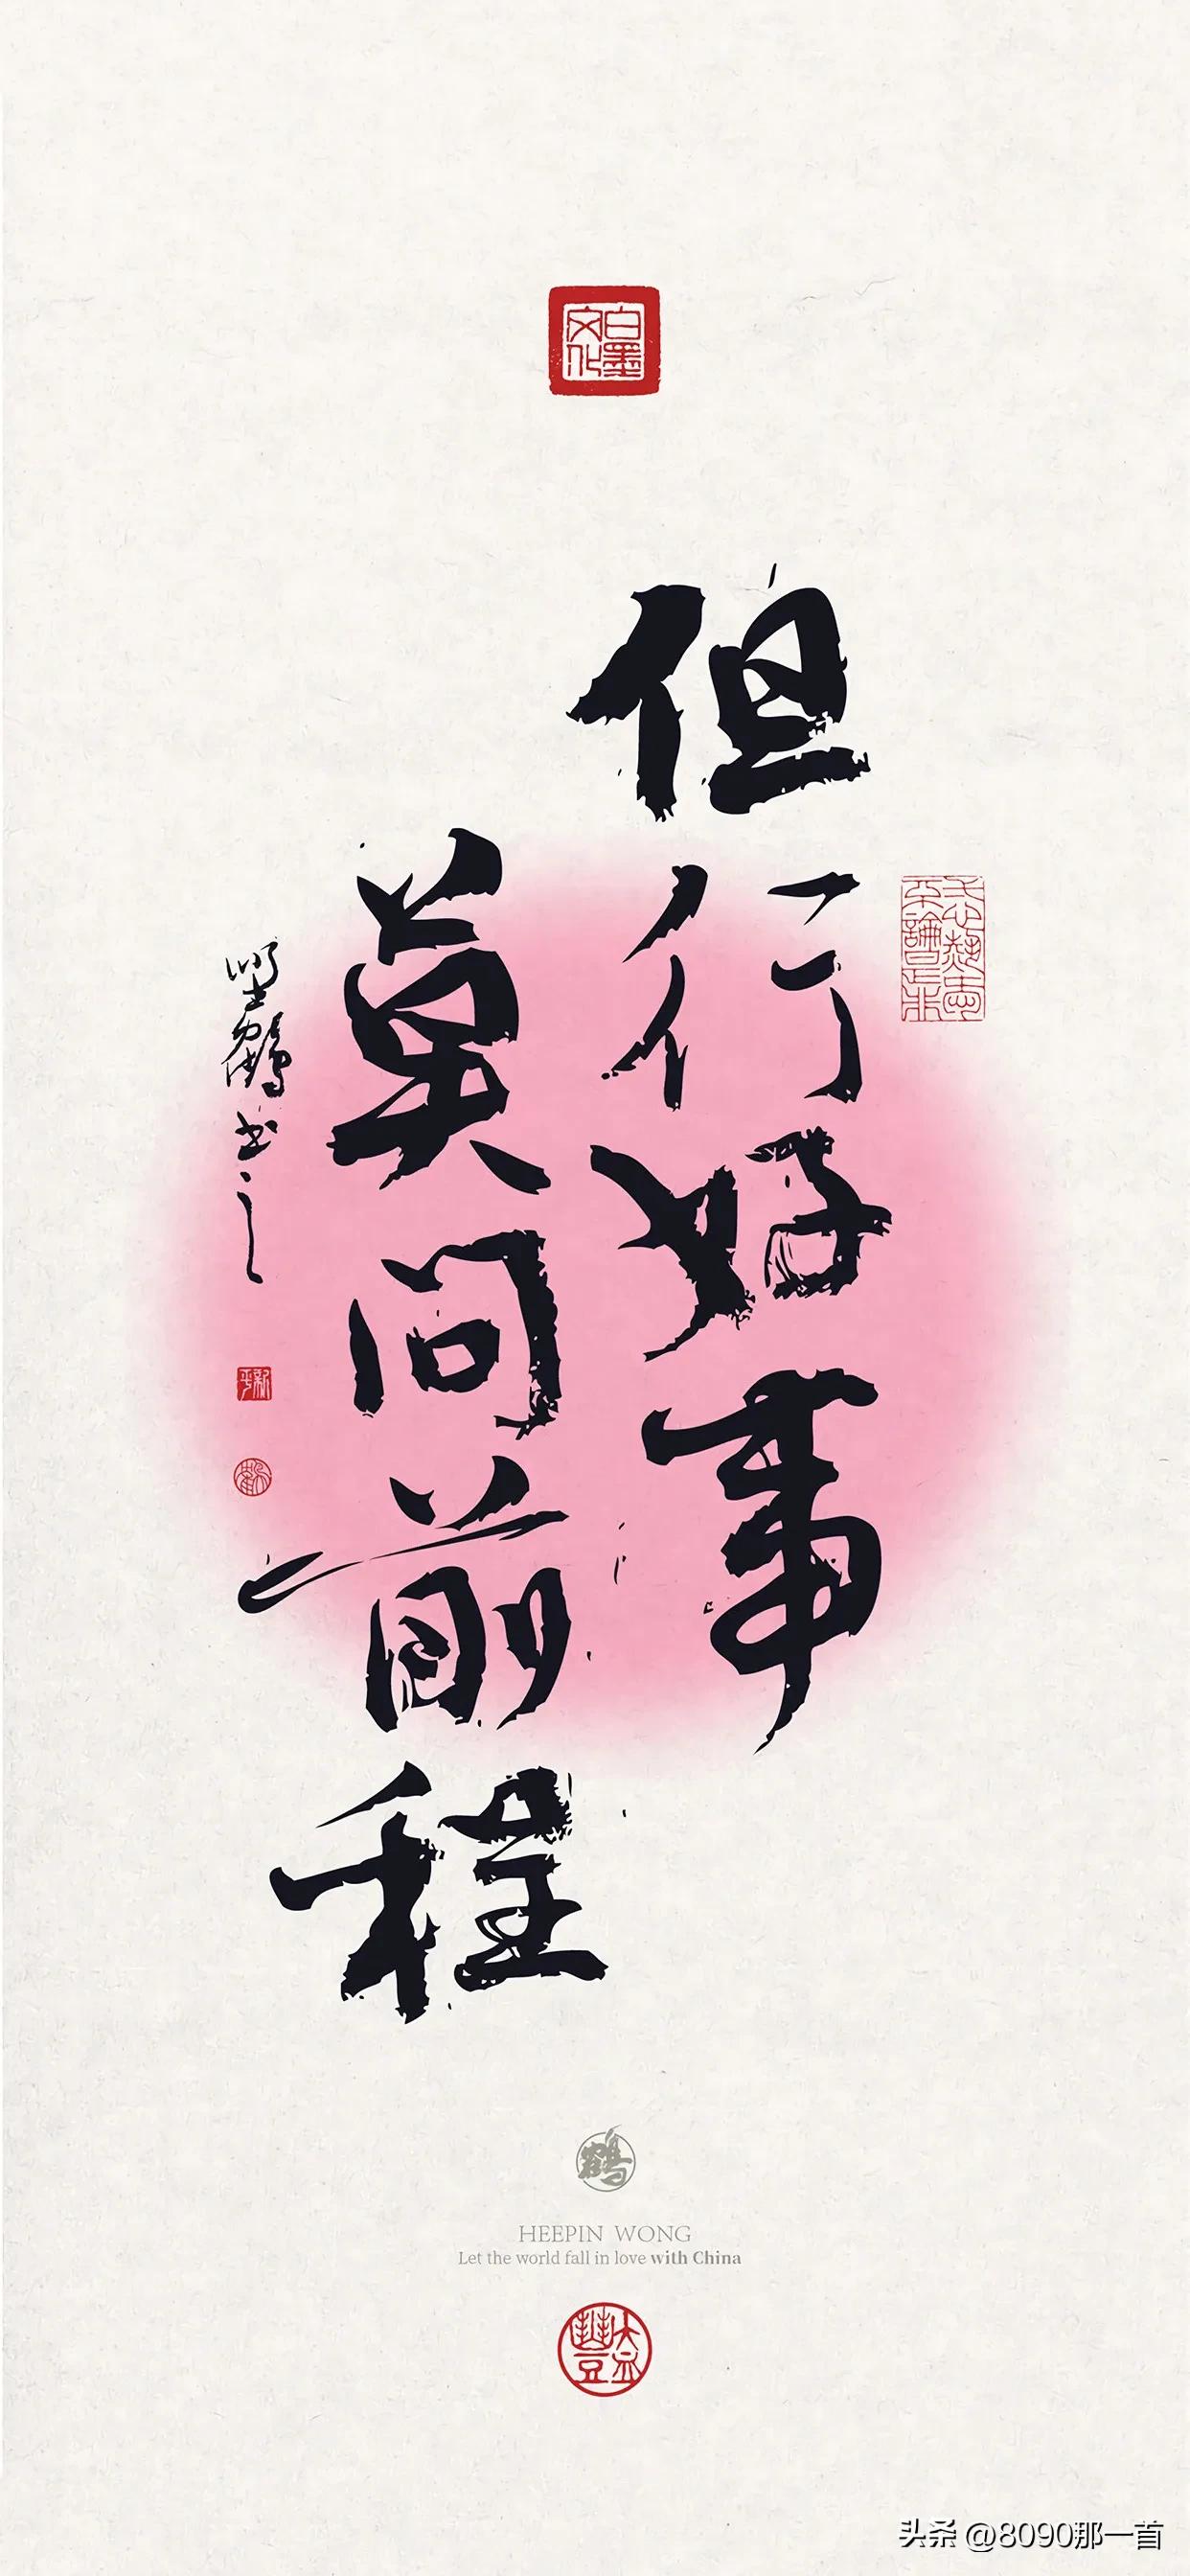 白墨
文化
但行好事
莫问前程
鹤书之
鶴
HEEPIN WONG
Let the world fall in love with China
大豆
豐
头条 @8090那一首